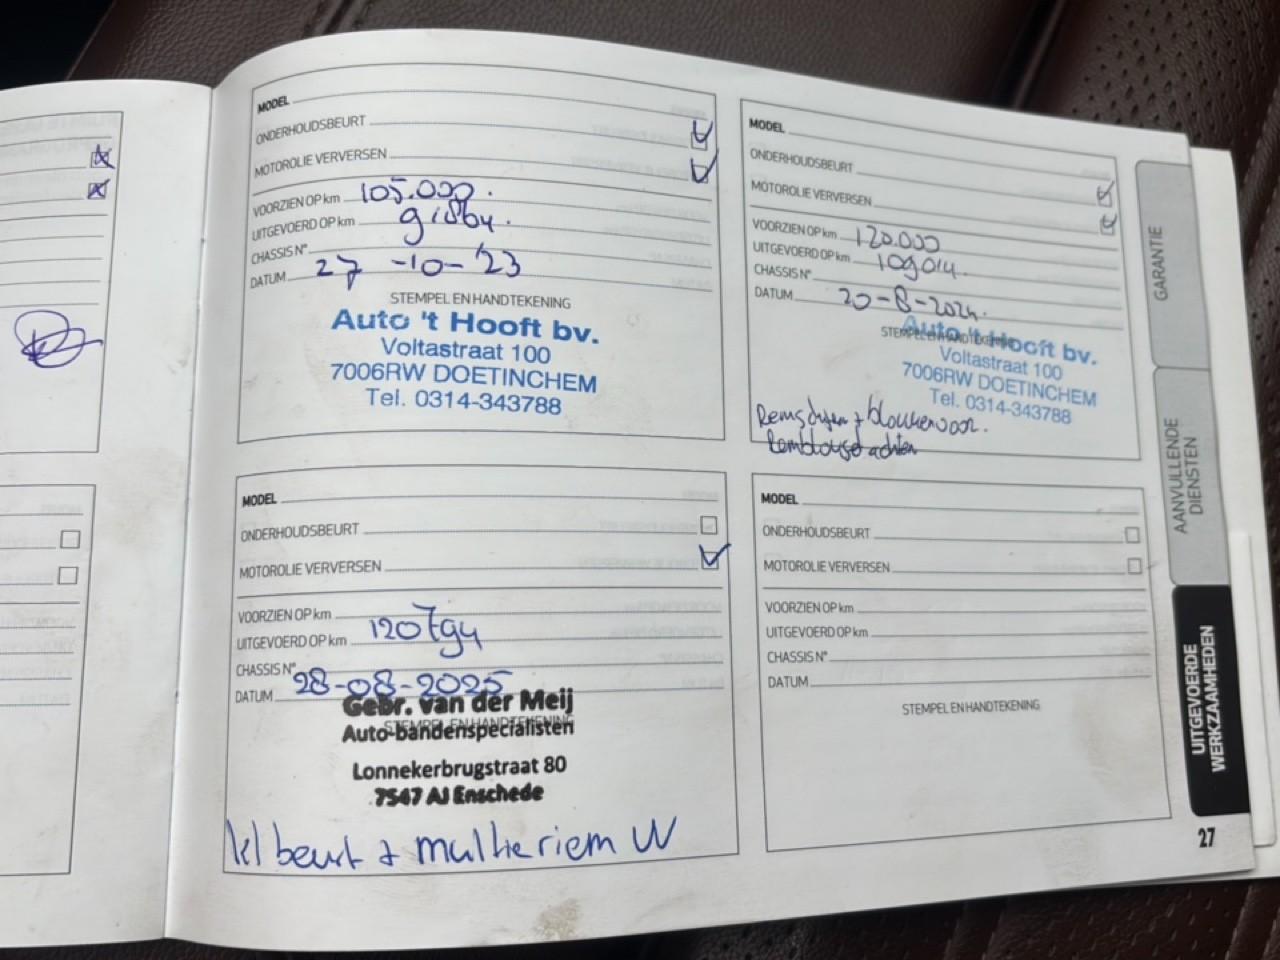 MODEL
ONDERHOUDSBEURT
MOTOROLIE VERVERSEN
VOORZIEN OP km 105.000.
UITGEVOERD OP km
CHASSIS N°
DATUM 27-10-'23
STEMPEL EN HANDTEKENING
Auto 't Hooft bv.
Voltastraat 100
7006RW DOETINCHEM
Tel. 0314-343788
MODEL
ONDERHOUDSBEURT
MOTOROLIE VERVERSEN
VOORZIEN OP km 120.000
UITGEVOERD OP km 109014.
CHASSIS N°
DATUM 20-8-2024.
STEMPEL EN HANDTEKENING
Auto 't Hooft bv.
Voltastraat 100
7006RW DOETINCHEM
Tel. 0314-343788
Remschijven + blokken voor.
Remblokset achter
MODEL
ONDERHOUDSBEURT
MOTOROLIE VERVERSEN
VOORZIEN OP km
UITGEVOERD OP km 120794
CHASSIS N°
DATUM 28-08-2025
STEMPEL EN HANDTEKENING
Gebr. van der Meij
Auto-bandenspecialisten
Lonnekerbrugstraat 80
7547 AJ Enschede
kl beurt + multieriem VV
MODEL
ONDERHOUDSBEURT
MOTOROLIE VERVERSEN
VOORZIEN OP km
UITGEVOERD OP km
CHASSIS N°
DATUM
STEMPEL EN HANDTEKENING
GARANTIE
AANVULLENDE
DIENSTEN
UITGEVOERDE
WERKZAAMHEDEN
27